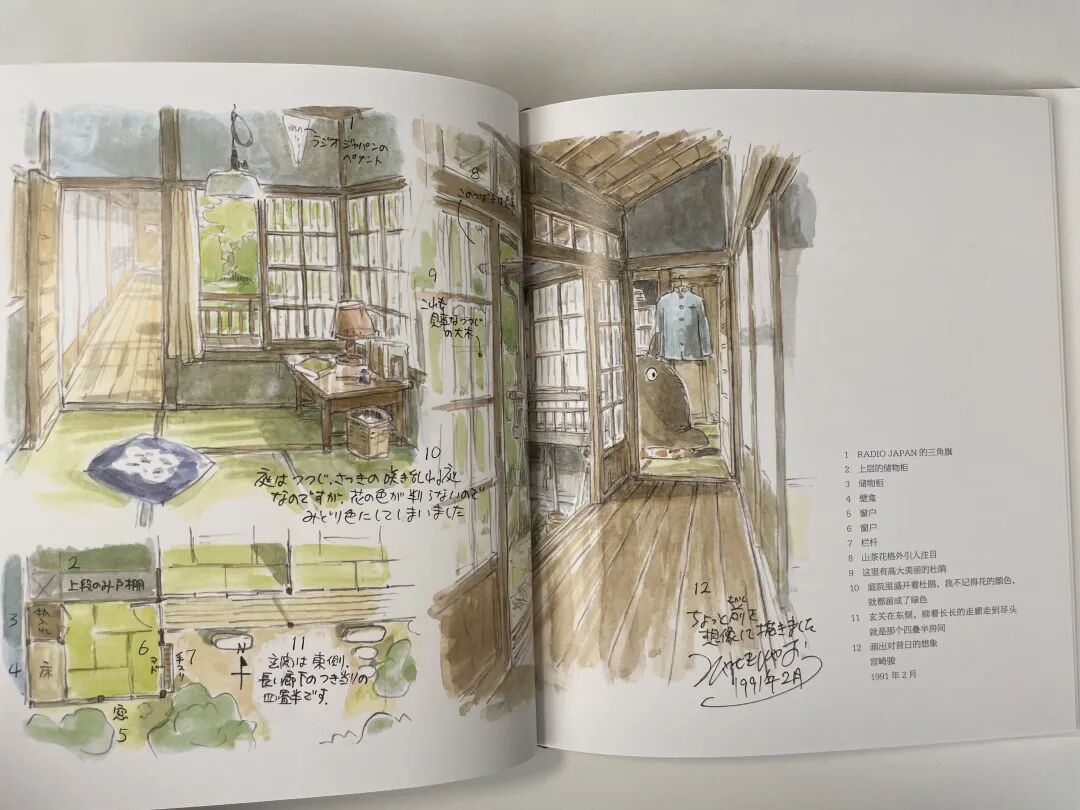 1
ラジオジャパンの
ペナント
8
9
この山も
見事なつつじ
の大木
10
庭はつつじ、さつきの咲き乱れる庭
なのですが、花の色が判らないので
みどり色にしてしまいました
2
上段のみ戸棚
3
物入れ
4
床
6
マド
7
手スリ
窓
5
N
11
玄関は東側、
長い廊下のつき当りの
四畳半です。
12
ちょっと前を
むかし
想像して描きました
1991年2月
1 RADIO JAPAN 的三角旗
2 上层的储物柜
3 储物柜
4 壁龛
5 窗户
6 窗户
7 栏杆
8 山茶花格外引人注目
9 这里有高大美丽的杜鹃
10 庭院里盛开着杜鹃，我不记得花的颜色，
就都画成了绿色
11 玄关在东侧，顺着长长的走廊走到尽头
就是那个四叠半房间
12 画出对昔日的想象
宫崎骏
1991 年 2 月